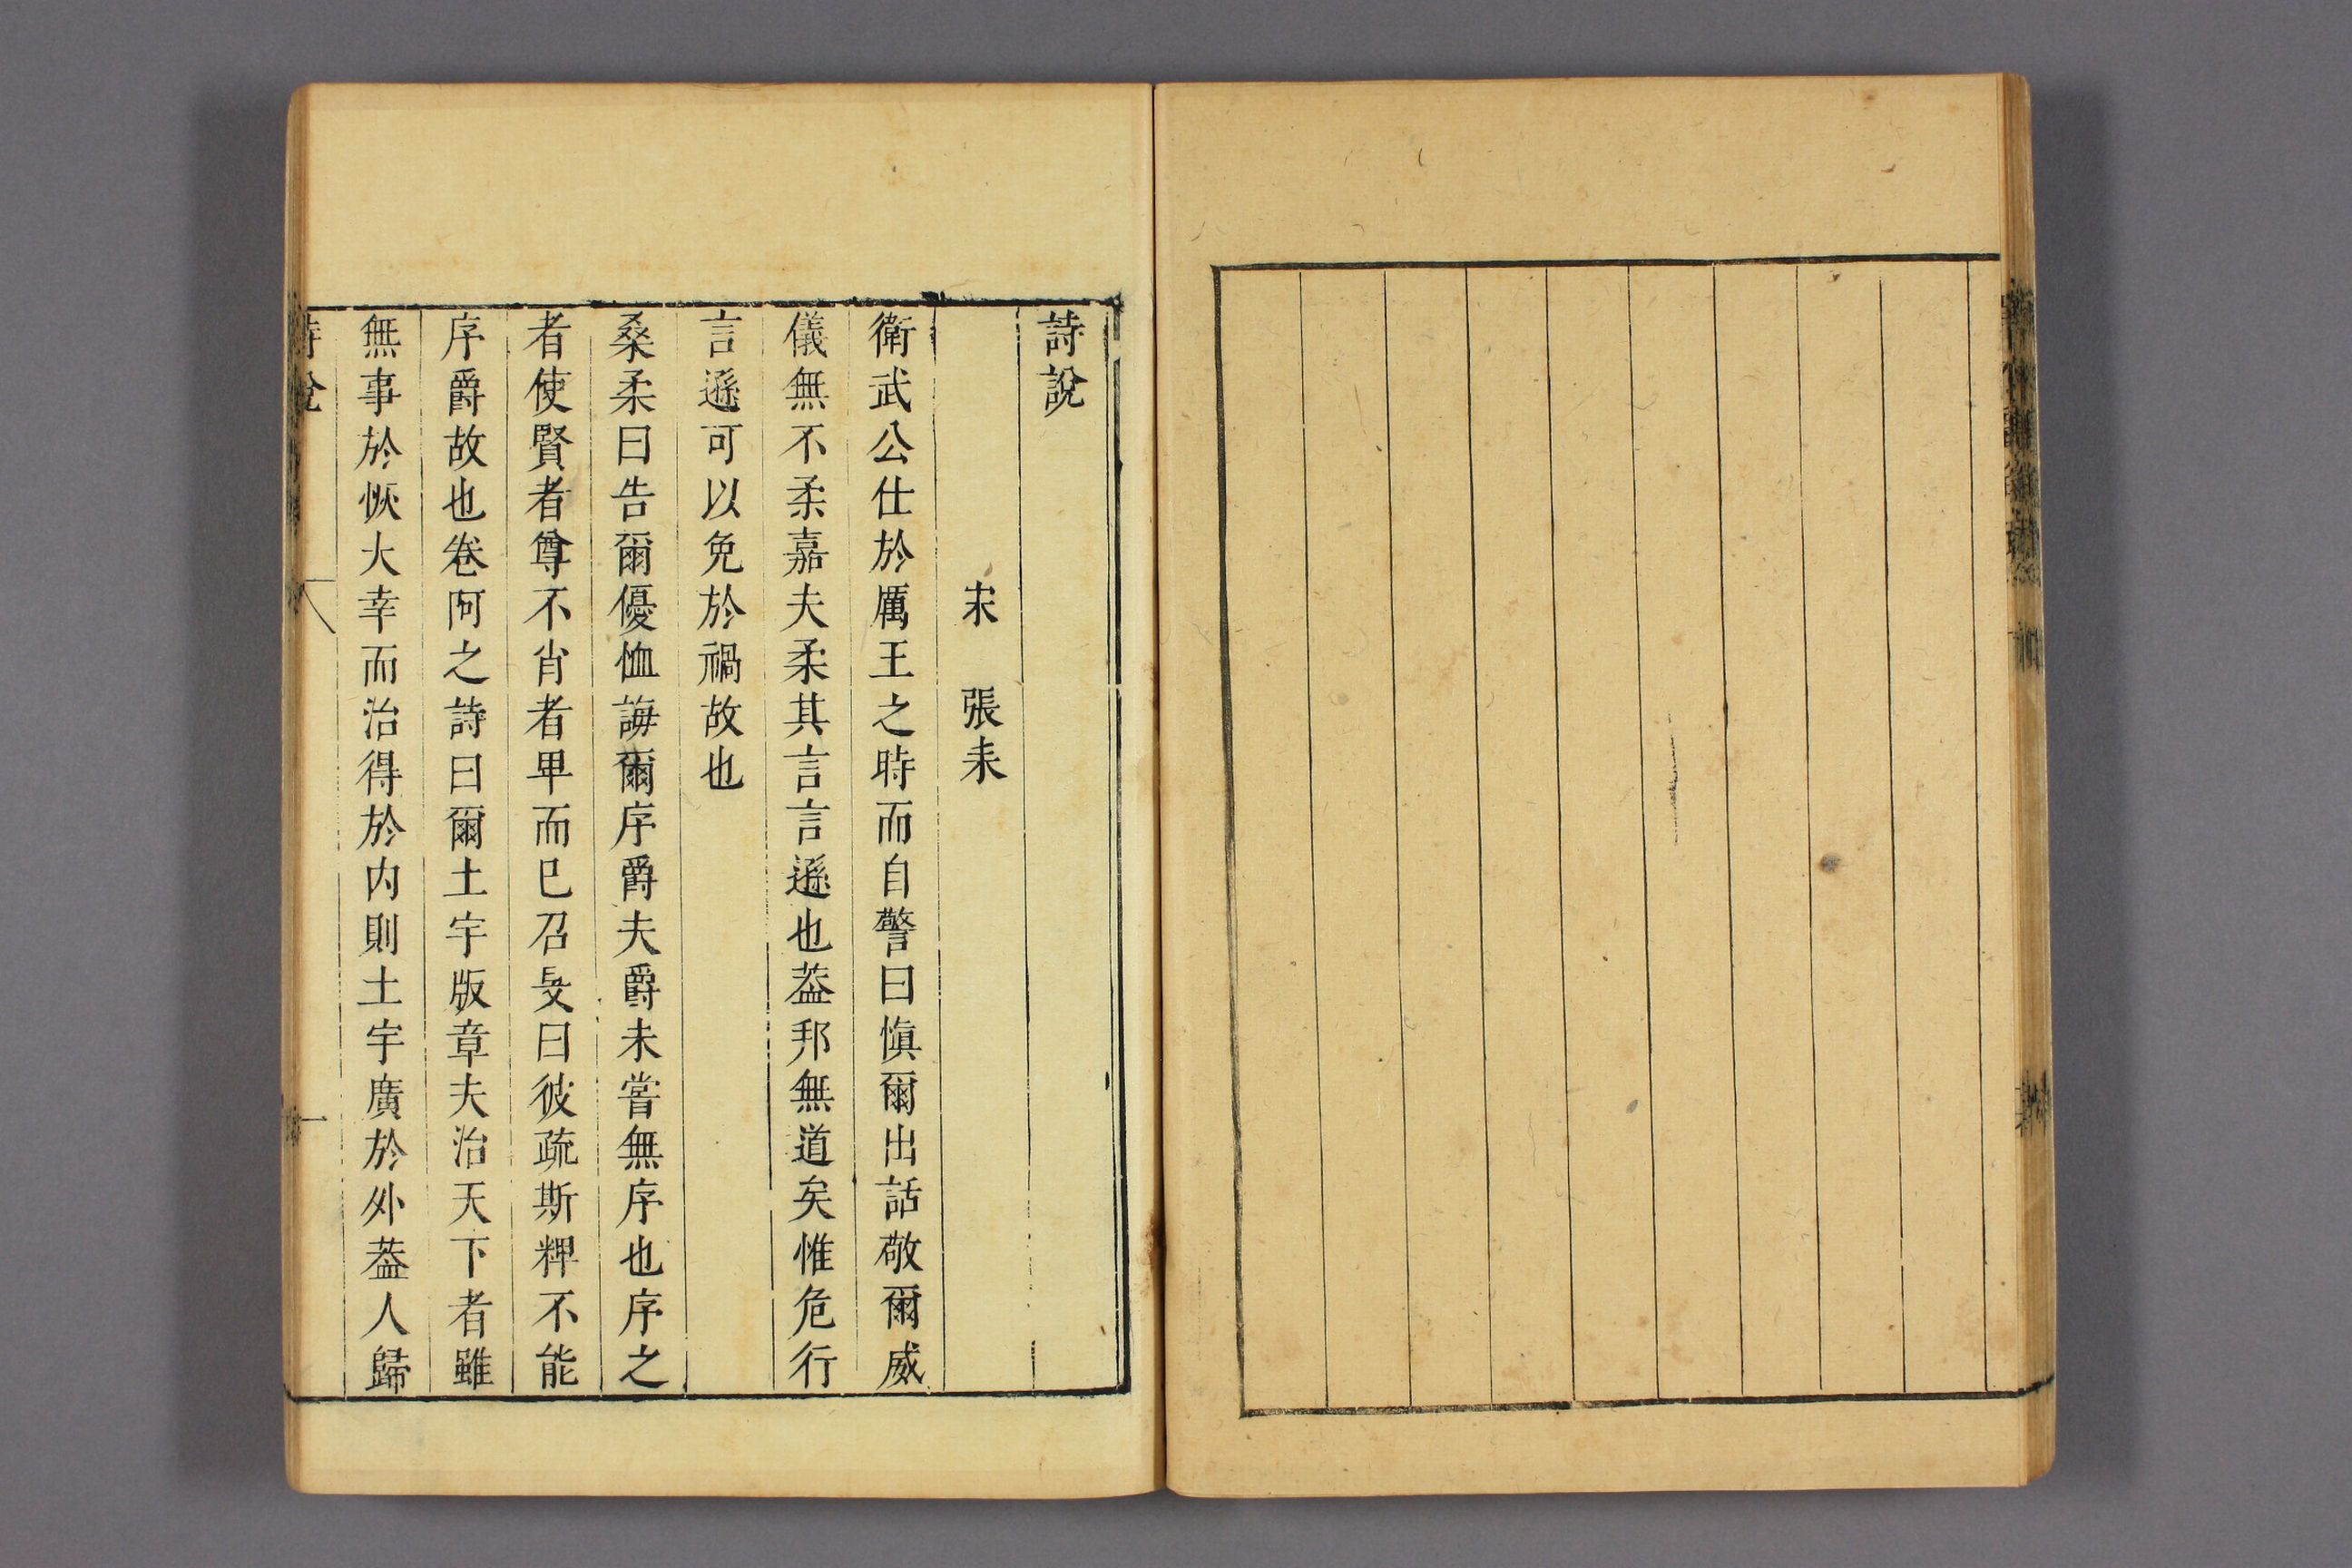 詩說
宋 張耒
衛武公仕於厲王之時而自警曰愼爾出話敬爾威
儀無不柔嘉夫柔其言言遜也葢邦無道矣惟危行
言遜可以免於禍故也
桑柔曰告爾優恤誨爾序爵夫爵未嘗無序也序之
者使賢者尊不肖者卑而已召旻曰彼疏斯粺不能
序爵故也卷阿之詩曰爾土宇版章夫治天下者雖
無事於恢大幸而治得於内則土宇廣於外葢人歸
詩說 一